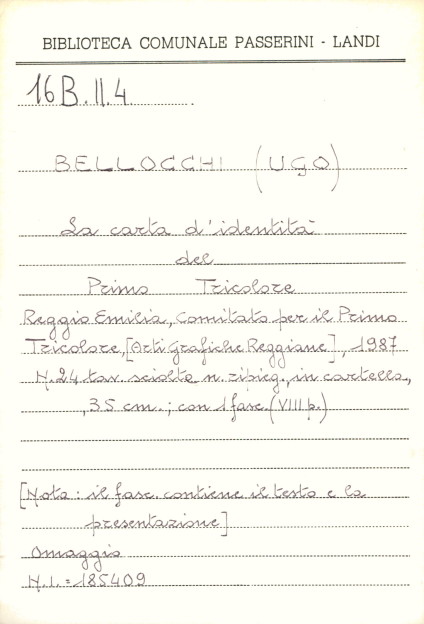 BIBLIOTECA COMUNALE PASSERINI - LANDI
16B.II.4
BELLOCCHI (UGO)
La carta d'identità
del
Primo Tricolore
Reggio Emilia, Comitato per il Primo
Tricolore, [Arti Grafiche Reggiane], 1987
N. 24 tav. sciolte n. ripieg., in cartella,
, 35 cm.; con 1 fasc. (VIII p.)
[Nota: il fasc. contiene il testo e la
presentazione]
Omaggio
N.I. = 185409